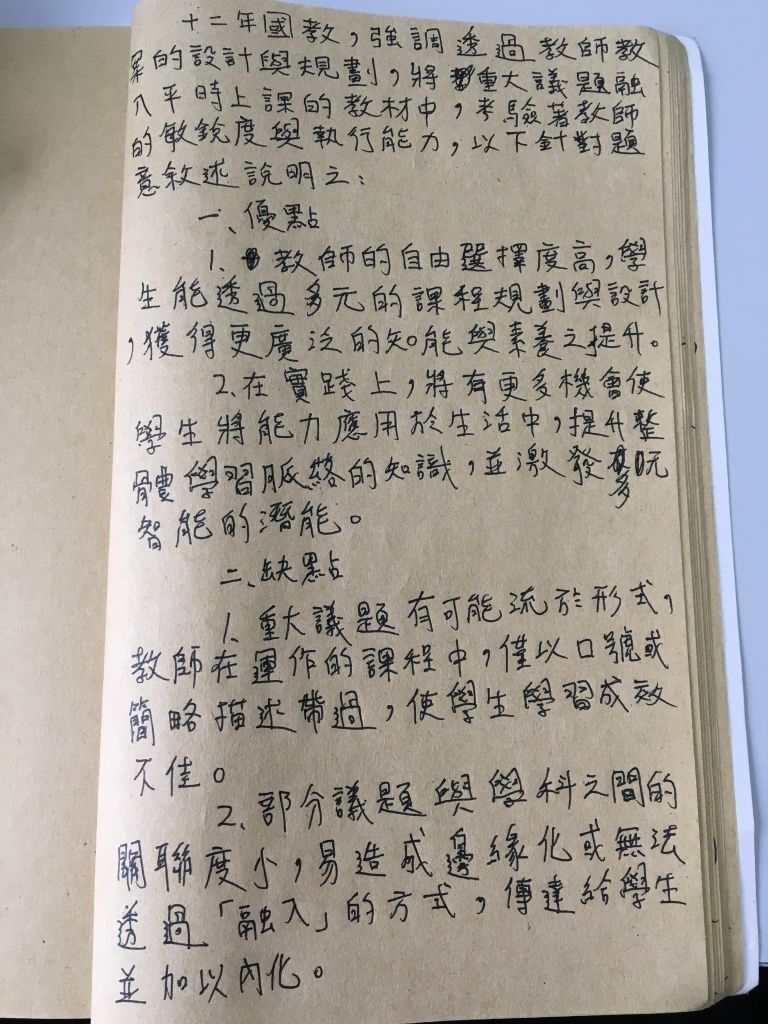 十二年國教，強調透過教師教
案的設計與規劃，將重大議題融
入平時上課的教材中，考驗著教師
的敏銳度與執行能力，以下針對題
意敘述說明之：
一、優點
1、教師的自由選擇度高，學
生能透過多元的課程規劃與設計
，獲得更廣泛的知能與素養之提升。
2、在實踐上，將有更多機會使
學生將能力應用於生活中，提升整
體學習脈絡的知識，並激發多元
智能的潛能。
二、缺點
1、重大議題有可能流於形式，
教師在運作的課程中，僅以口號或
簡略描述帶過，使學生學習成效
不佳。
2、部分議題與學科之間的
關聯度小，易造成邊緣化或無法
透過「融入」的方式，傳達給學生
並加以內化。